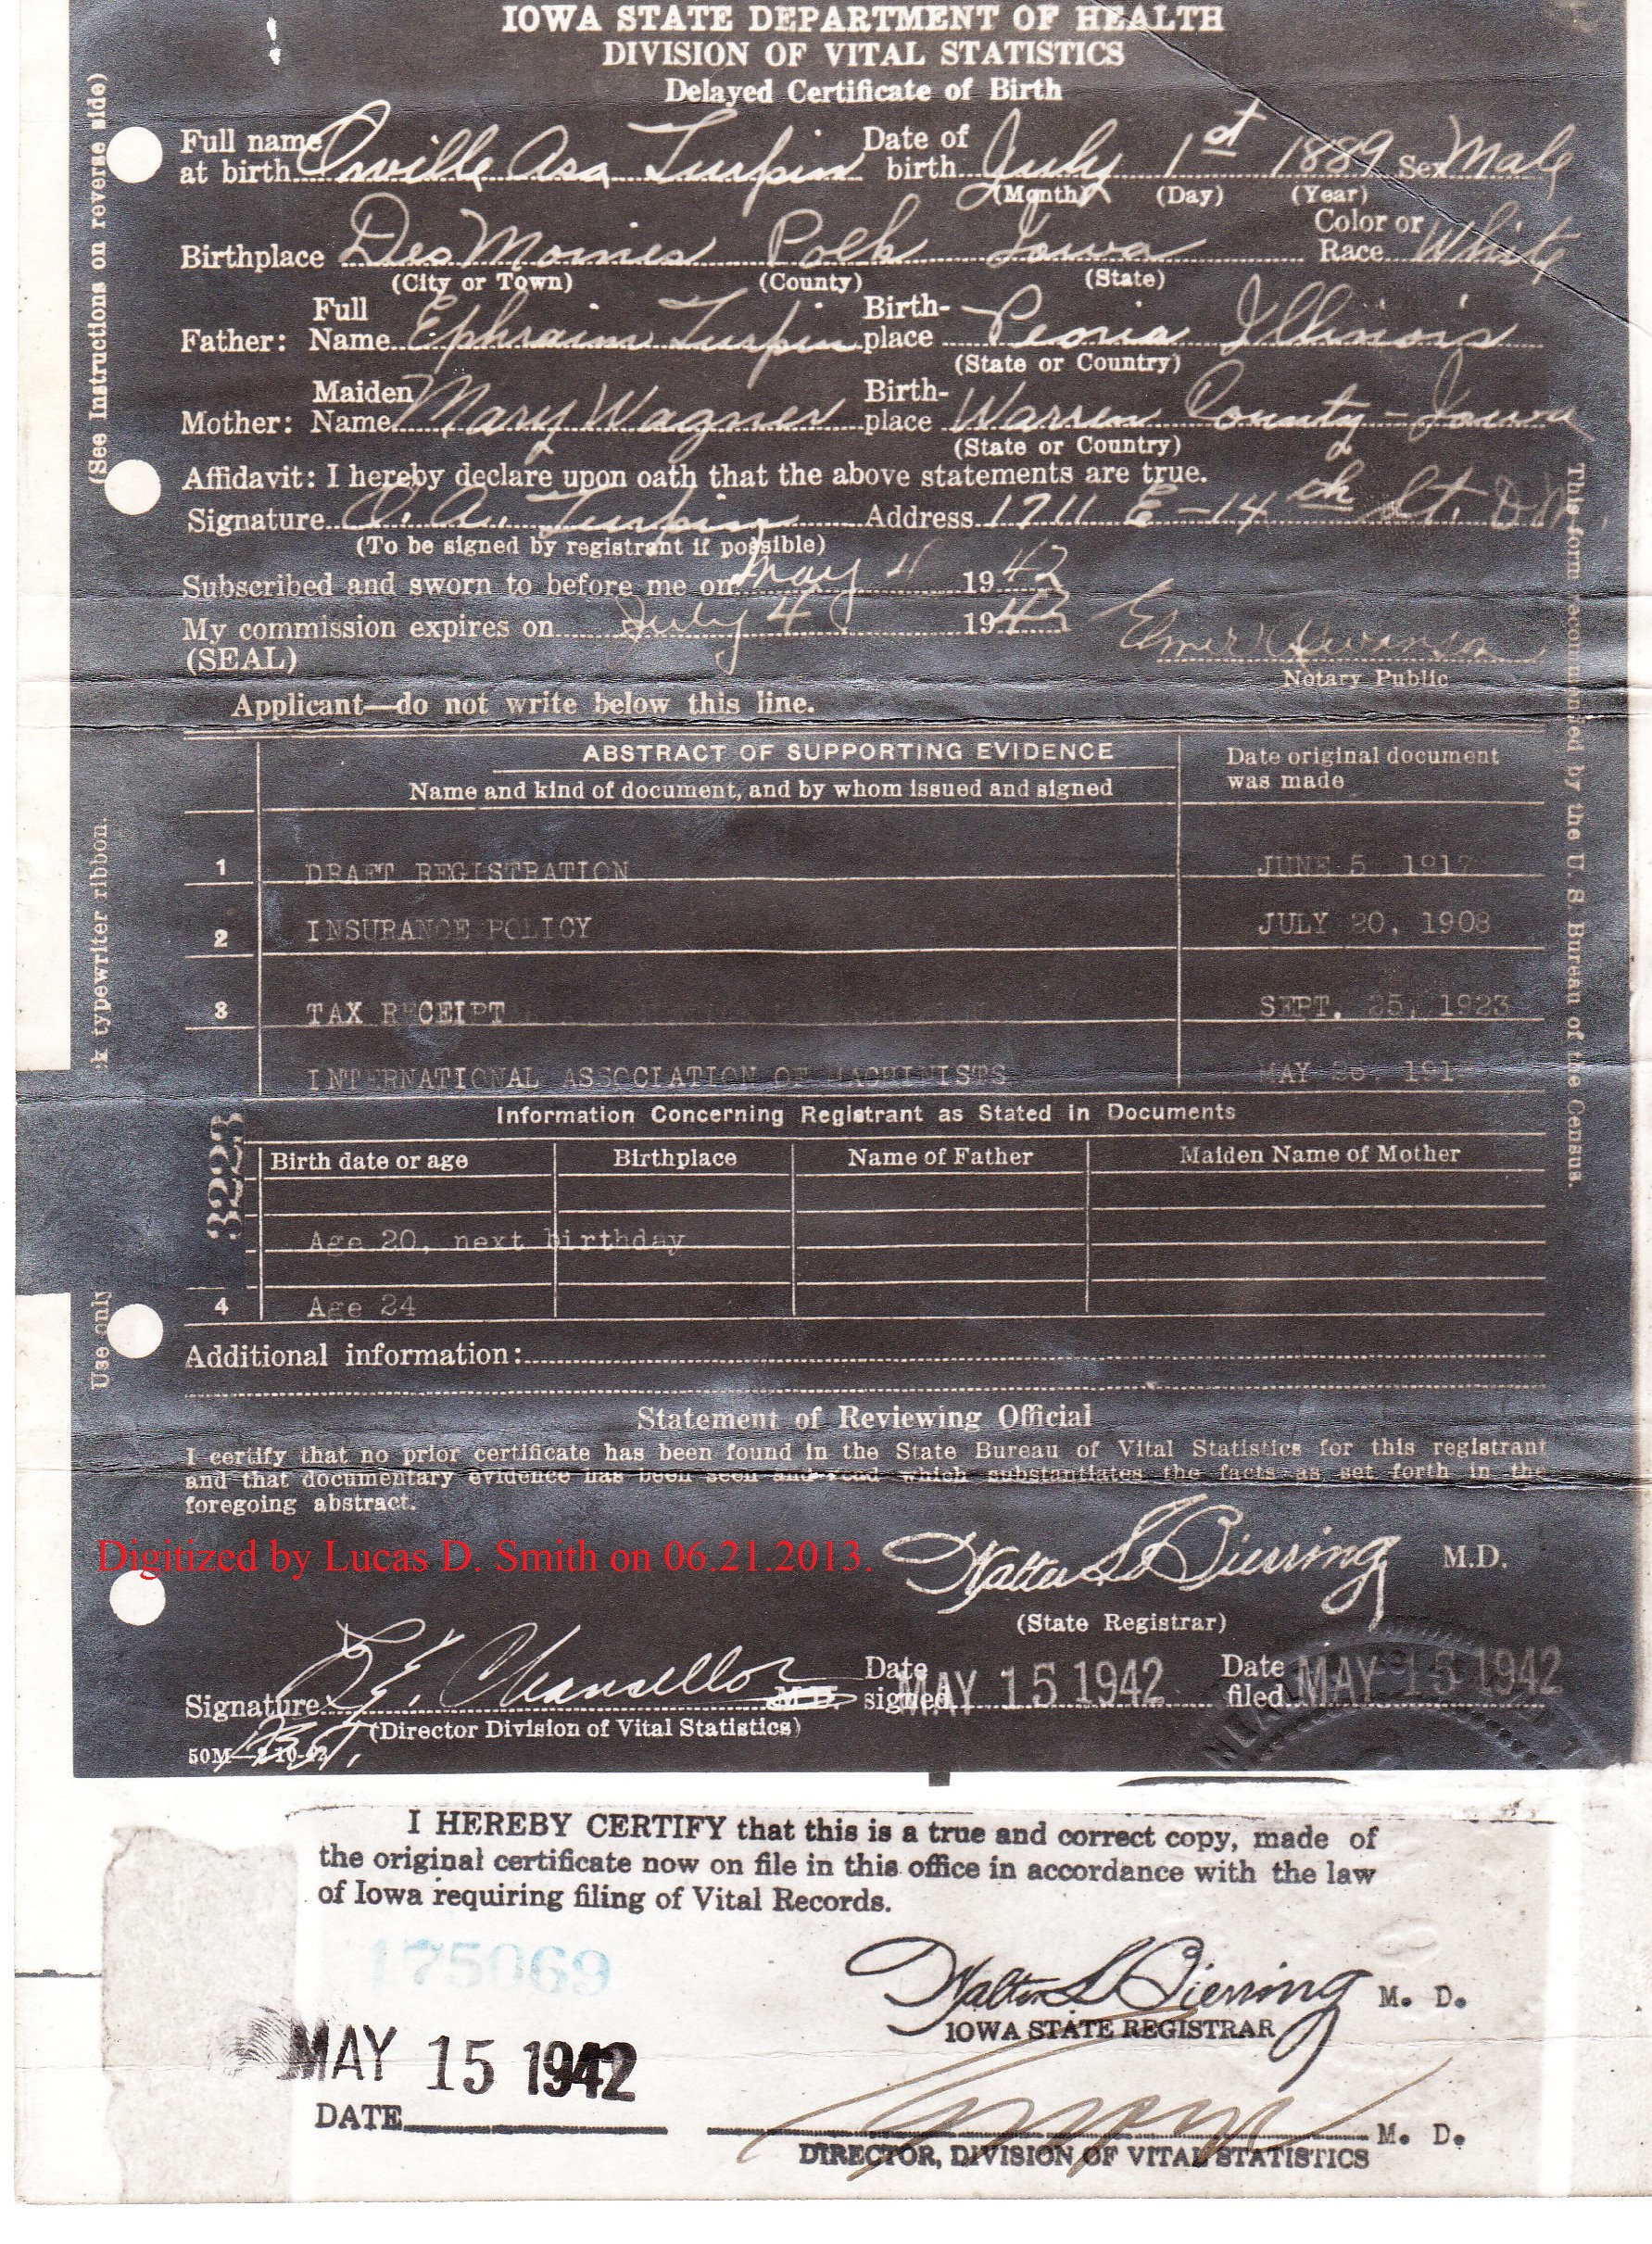 IOWA STATE DEPARTMENT OF HEALTH
DIVISION OF VITAL STATISTICS
Delayed Certificate of Birth
Full name at birth Orville Asa Turpin Date of birth July 1st 1889 Sex Male
(Month) (Day) (Year)
Birthplace Des Moines Polk Iowa Color or Race White
(City or Town) (County) (State)
Father: Full Name Ephraim Turpin Birth-place Peoria Illinois
(State or Country)
Mother: Maiden Name Mary Wagner Birth-place Warren County - Iowa
(State or Country)
Affidavit: I hereby declare upon oath that the above statements are true.
Signature O. A. Turpin Address 1711 E-14th St. D.M.
(To be signed by registrant if possible)
Subscribed and sworn to before me on May 4 1942
My commission expires on July 4 1942
(SEAL)
Elmer Swanson
Notary Public
Applicant—do not write below this line.
ABSTRACT OF SUPPORTING EVIDENCE
Name and kind of document, and by whom issued and signed
Date original document
was made
1 DRAFT REGISTRATION JUNE 5 1917
2 INSURANCE POLICY JULY 20, 1908
3 TAX RECEIPT SEPT. 25, 1923
INTERNATIONAL ASSOCIATION OF MACHINISTS MAY
Information Concerning Registrant as Stated in Documents
Birth date or age Birthplace Name of Father Maiden Name of Mother
Age 20, next birthday
4 Age 24
3223
Additional information:
Statement of Reviewing Official
I certify that no prior certificate has been found in the State Bureau of Vital Statistics for this registrant
and that documentary evidence has been seen and read which substantiates the facts as set forth in the
foregoing abstract.
Digitized by Lucas D. Smith on 06.21.2013.
Walter L. Bierring M.D.
(State Registrar)
Signature L. E. Chancellor M.D. Date signed MAY 15 1942 Date filed MAY 15 1942
(Director Division of Vital Statistics)
50M—2-10-42
(See Instructions on reverse side)
typewriter ribbon.
Use only
This form recommended by the U. S. Bureau of the Census.
I HEREBY CERTIFY that this is a true and correct copy, made of
the original certificate now on file in this office in accordance with the law
of Iowa requiring filing of Vital Records.
175069
Walter L Bierring M. D.
IOWA STATE REGISTRAR
MAY 15 1942
DATE
M. D.
DIRECTOR, DIVISION OF VITAL STATISTICS